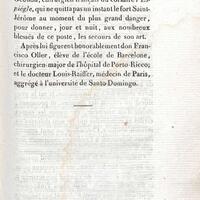 chirurgien français du corsaire l'Es-
piégle, qui ne quitta pas un instant le fort Saint-
Jérôme au moment du plus grand danger,
pour donner, jour et nuit, aux nombreux
blessés de ce poste, les secours de son art.
Après lui figurent honorablement don Fran-
cisco Oller, élève de l'école de Barcelone,
chirurgien-major de l'hôpital de Porto-Ricco;
et le docteur Louis-Raiffer, médecin de Paris,
aggrégé à l'université de Santo-Domingo.